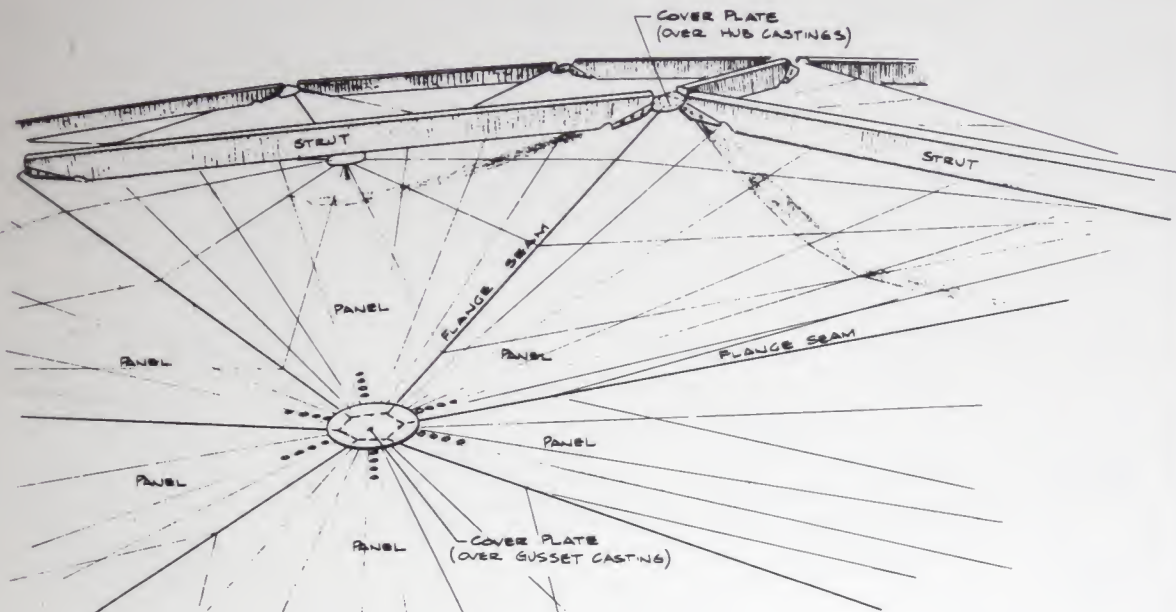 COVER PLATE
(OVER HUB CASTINGS)
STRUT
STRUT
FLANGE SEAM
PANEL
PANEL
PANEL
FLANGE SEAM
PANEL
PANEL
PANEL
COVER PLATE
(OVER GUSSET CASTING)